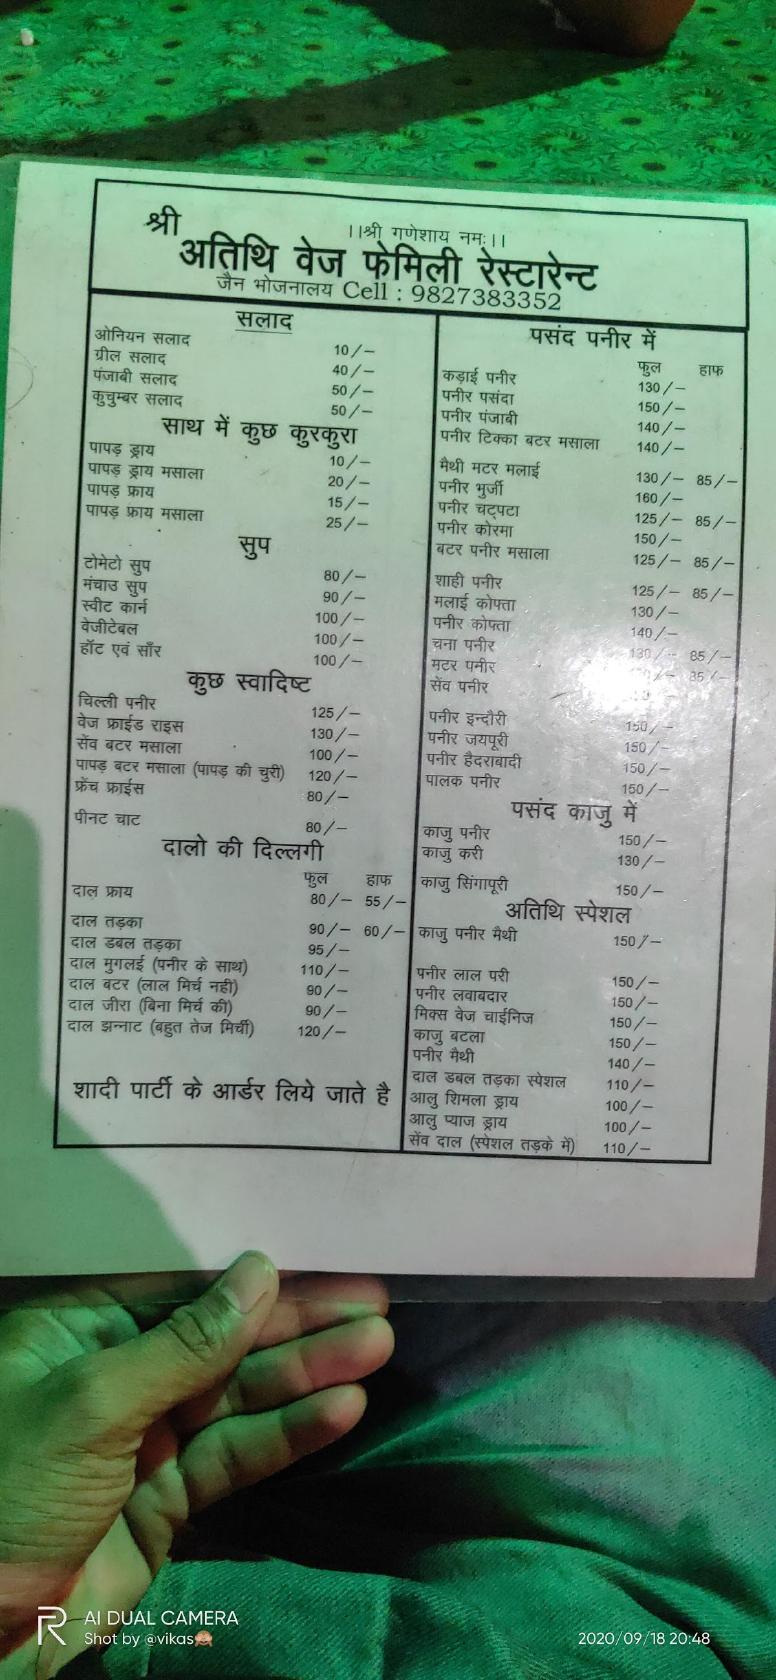 श्री
।।श्री गणेशाय नमः।।
अतिथि वेज फेमिली रेस्टारेन्ट
जैन भोजनालय Cell : 9827383352
सलाद
ओनियन सलाद 10/-
ग्रील सलाद 40/-
पंजाबी सलाद 50/-
कुचुम्बर सलाद 50/-
साथ में कुछ कुरकुरा
पापड़ ड्राय 10/-
पापड़ ड्राय मसाला 20/-
पापड़ फ्राय 15/-
पापड़ फ्राय मसाला 25/-
सुप
टोमेटो सुप 80/-
मंचाउ सुप 90/-
स्वीट कार्न 100/-
वेजीटेबल 100/-
हॉट एवं सॉर 100/-
कुछ स्वादिष्ट
चिल्ली पनीर 125/-
वेज फ्राईड राइस 130/-
सेंव बटर मसाला 100/-
पापड़ बटर मसाला (पापड़ की चुरी) 120/-
फ्रेंच फ्राईस 80/-
पीनट चाट 80/-
दालो की दिल्लगी
फुल हाफ
दाल फ्राय 80/- 55/-
दाल तड़का 90/- 60/-
दाल डबल तड़का 95/-
दाल मुगलई (पनीर के साथ) 110/-
दाल बटर (लाल मिर्च नही) 90/-
दाल जीरा (बिना मिर्च की) 90/-
दाल झन्नाट (बहुत तेज मिर्ची) 120/-
शादी पार्टी के आर्डर लिये जाते है
पसंद पनीर में
फुल हाफ
कड़ाई पनीर 130/-
पनीर पसंदा 150/-
पनीर पंजाबी 140/-
पनीर टिक्का बटर मसाला 140/-
मैथी मटर मलाई 130/- 85/-
पनीर भुर्जी 160/-
पनीर चट्पटा 125/- 85/-
पनीर कोरमा 150/-
बटर पनीर मसाला 125/- 85/-
शाही पनीर 125/- 85/-
मलाई कोफ्ता 130/-
पनीर कोफ्ता 140/-
चना पनीर 130/- 85/-
मटर पनीर 85/-
सेंव पनीर
पनीर इन्दौरी 150/-
पनीर जयपूरी 150/-
पनीर हैदराबादी 150/-
पालक पनीर 150/-
पसंद काजु में
काजु पनीर 150/-
काजु करी 130/-
काजु सिंगापूरी 150/-
अतिथि स्पेशल
काजु पनीर मैथी 150/-
पनीर लाल परी 150/-
पनीर लवाबदार 150/-
मिक्स वेज चाईनिज 150/-
काजु बटला 150/-
पनीर मैथी 140/-
दाल डबल तड़का स्पेशल 110/-
आलु शिमला ड्राय 100/-
आलु प्याज ड्राय 100/-
सेंव दाल (स्पेशल तड़के में) 110/-
AI DUAL CAMERA
Shot by @vikas🙈
2020/09/18 20:48